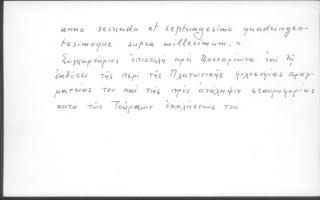 anno secundo et septuagesimo quadringen-
tesimoque supra millesimum. "
Συγχαρτήριος ἐπιστολή πρός Βησσαρίωνα ἐπί τῇ
ἐκδόσει τῆς περί τῆς Πλατωνικῆς φιλοσοφίας πραγ-
ματείας του καί τῆς πρός ἀνάληψιν σταυροφορίας
κατά τῶν Τούρκων ἐκκλήσεώς του